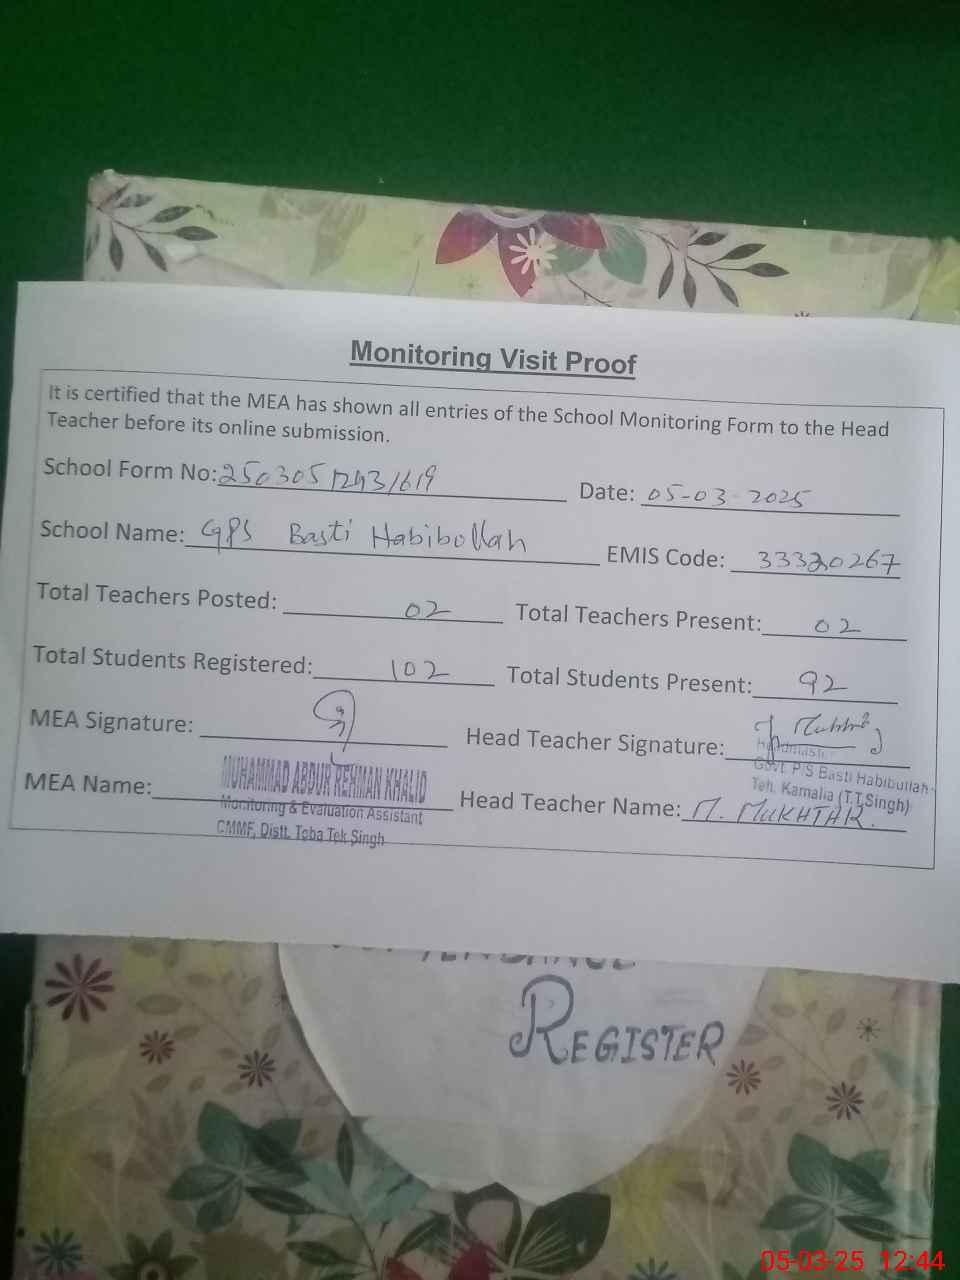 Monitoring Visit Proof
It is certified that the MEA has shown all entries of the School Monitoring Form to the Head
Teacher before its online submission.
School Form No: Date: 05-03-2025
School Name: GPS Basti Habibollah EMIS Code:
Total Teachers Posted: 02 Total Teachers Present: 02
Total Students Registered: 102 Total Students Present: 92
MEA Signature: Head Teacher Signature:
Headmaster
Govt. P/S Basti Habibullah
Teh. Kamalia (T.T.Singh)
MEA Name: MUHAMMAD ABDUR REHMAN KHALID
Monitoring & Evaluation Assistant
CMMF, Distt. Toba Tek Singh
Head Teacher Name: M. MUKHTAR.
REGISTER
05-03-25 12:44